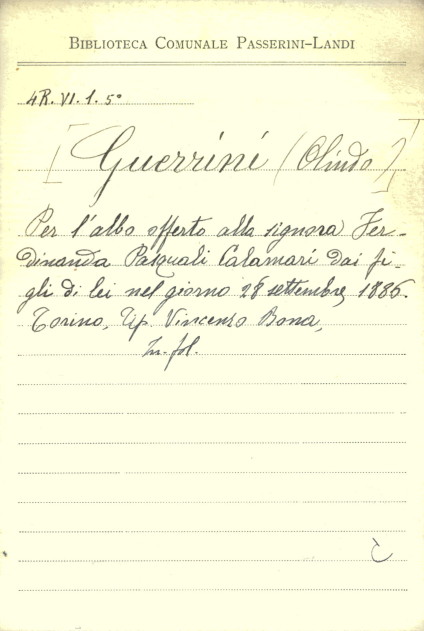 BIBLIOTECA COMUNALE PASSERINI-LANDI
4R. VI. 1. 5º
[Guerrini (Olindo)]
Per l'albo offerto alla signora Fer-
dinanda Pasquali Calamari dai fi-
gli di lei nel giorno 28 settembre 1886.
Torino, Tip. Vincenzo Bona,
In-fol.